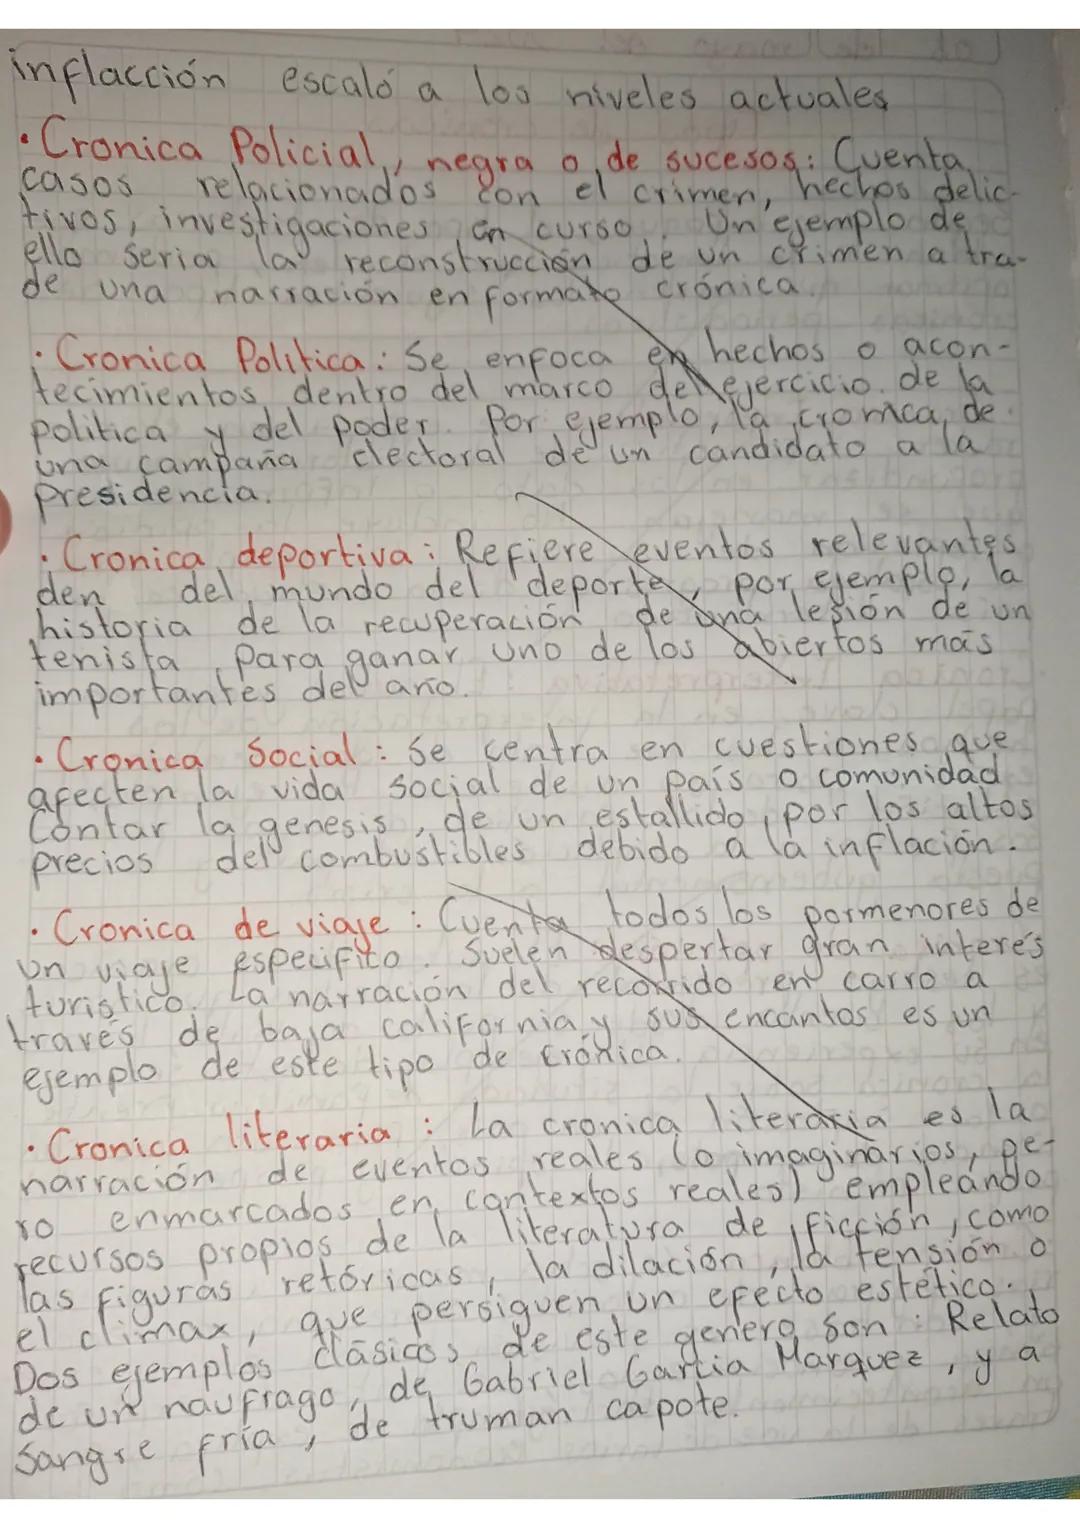 inflacción escaló a los niveles actuales
• Cronica Policial, negra o de sucesos: Cuenta
casos relacionados con el crimen, hechos delic-
tivos, investigaciones en curso. Un ejemplo de
ello seria la reconstrucción de un crimen a tra-
de una narración en formato crónica.
• Cronica Política: Se enfoca en hechos o acon-
tecimientos dentro del marco del ejercicio de la
política y del poder. Por ejemplo, la cronica de
una campaña electoral de un candidato a la
presidencia.
• Cronica deportiva: Refiere eventos relevantes
den del mundo del deporte, por ejemplo, la
historia de la recuperación de una lesión de un
tenista para ganar uno de los abiertos más
importantes del año.
• Cronica Social: Se centra en cuestiones que
afecten la vida social de un país o comunidad
Contar la genesis, de un estallido, por los altos
precios del combustibles debido a la inflación.
• Cronica de viaje: Cuenta todos los pormenores de
un viaje especifico. Suelen despertar gran interés
turistico. La narración del recorrido en carro a
través de baja california y sus encantos es un
ejemplo de este tipo de crónica.
• Cronica literaria: La cronica literaria es la
narración de eventos reales (o imaginarios, pe-
ro enmarcados en contextos reales) empleando
recursos propios de la literatura de ficción, como
las figuras retóricas, la dilación, la tensión o
el climax, que persiguen un efecto estético.
Dos ejemplos clásicos de este genero son: Relato
de un naufrago, de Gabriel Garcia Marquez, y a
Sangre fría, de truman capote.